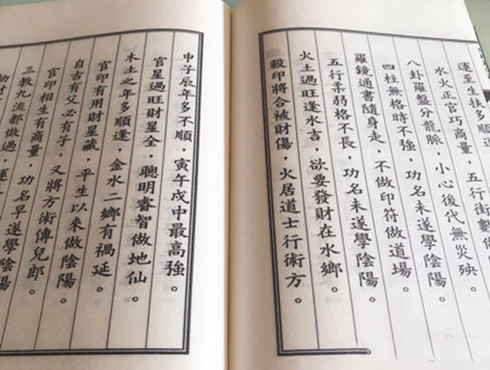 運至生扶多順
五行術數
水火正官巧商量，小心後代無災殃。
八卦羅盤分龍脈，功名未遂學陰陽
四柱無格時不強，不做印符做道場
羅鏡通書隨身走，功名未遂學陰陽。
五行柔弱格不長，欲要發財在水鄉。
火土過旺逢水吉，火居道士行術方。
殺印將合被財傷，
申子辰年多不順，寅午戌中最高強。
官星過旺財星全，聰明睿智做地仙。
木土之年多順逢，金水二鄉有禍延。
官印有用財星藏，平生以來做陰陽
自古有父必有子，又將方術傳兒郎。
官印相生有商量，功名早遂學陰陽
三教九流都做過，運